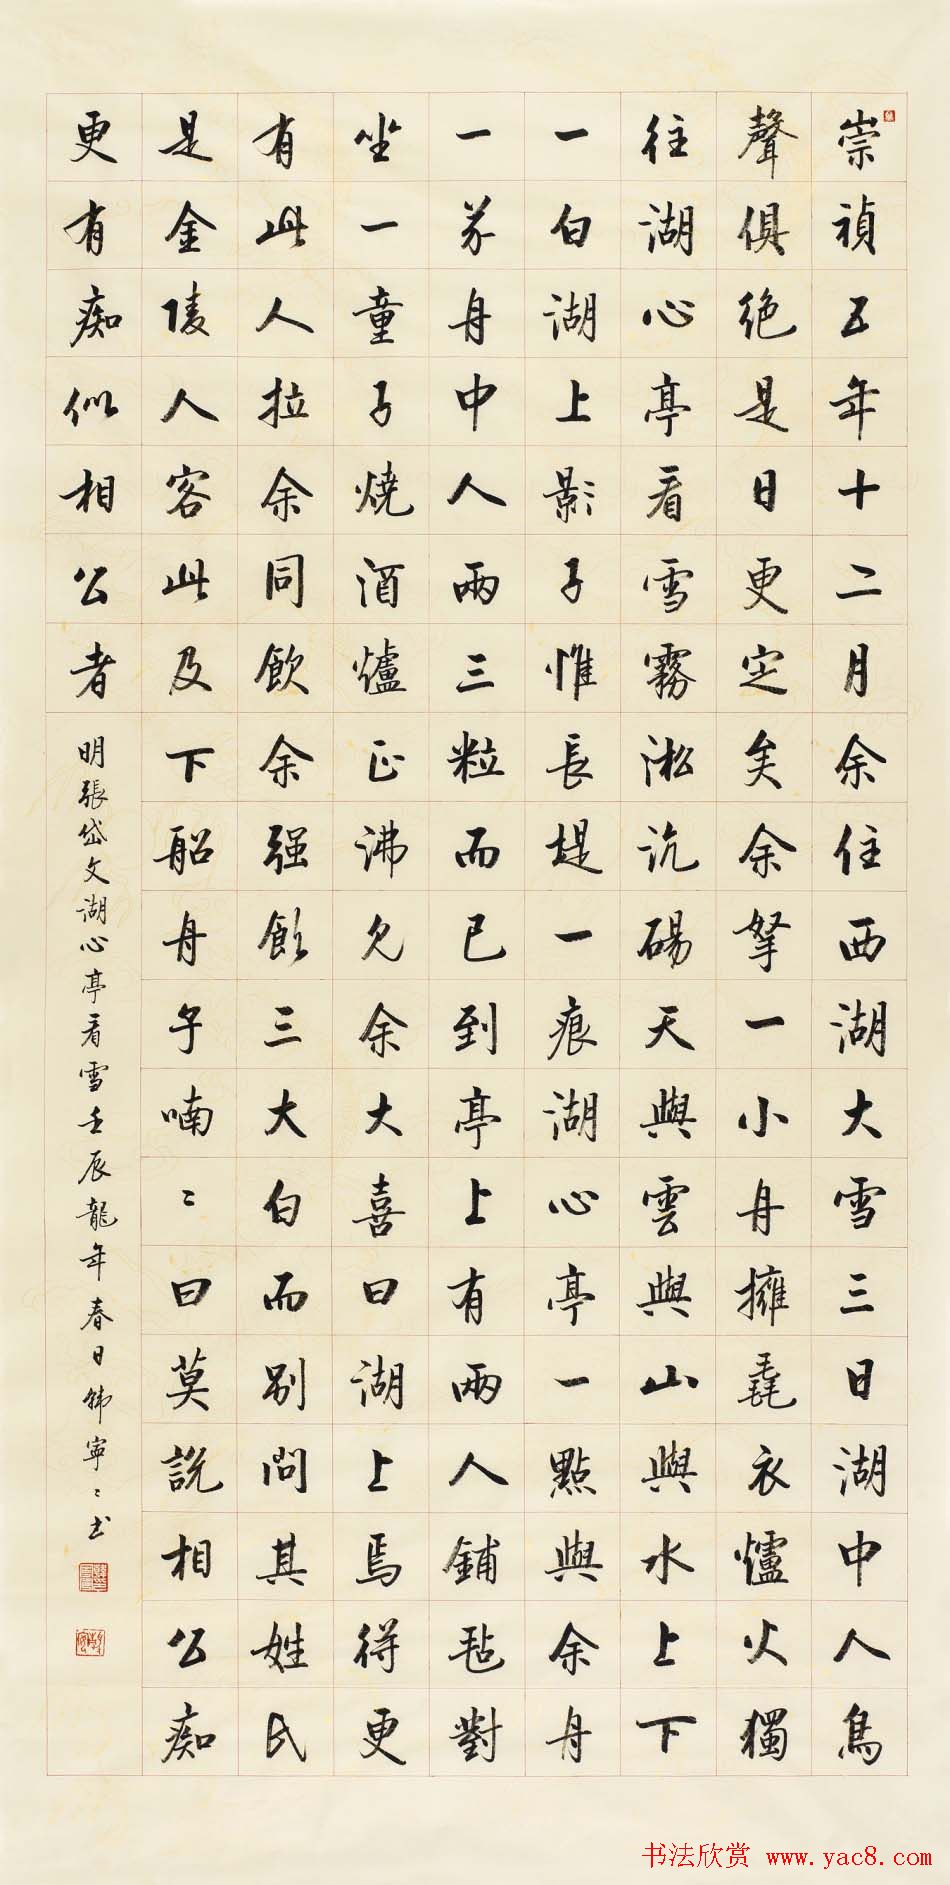 崇禎五年十二月余住西湖大雪三日湖中人鳥
聲俱絶是日更定矣余拏一小舟擁毳衣爐火獨
往湖心亭看雪霧淞沆碭天與雲與山與水上下
一白湖上影子惟長堤一痕湖心亭一點與余舟
一芥舟中人兩三粒而已到亭上有兩人鋪毡對
坐一童子燒酒爐正沸見余大喜曰湖上焉得更
有此人拉余同飲余强飲三大白而別問其姓氏
是金陵人客此及下船舟子喃〻曰莫説相公痴
更有痴似相公者
明張岱文湖心亭看雪壬辰龍年春日韩寧〻书
书法欣赏 www.yac8.com